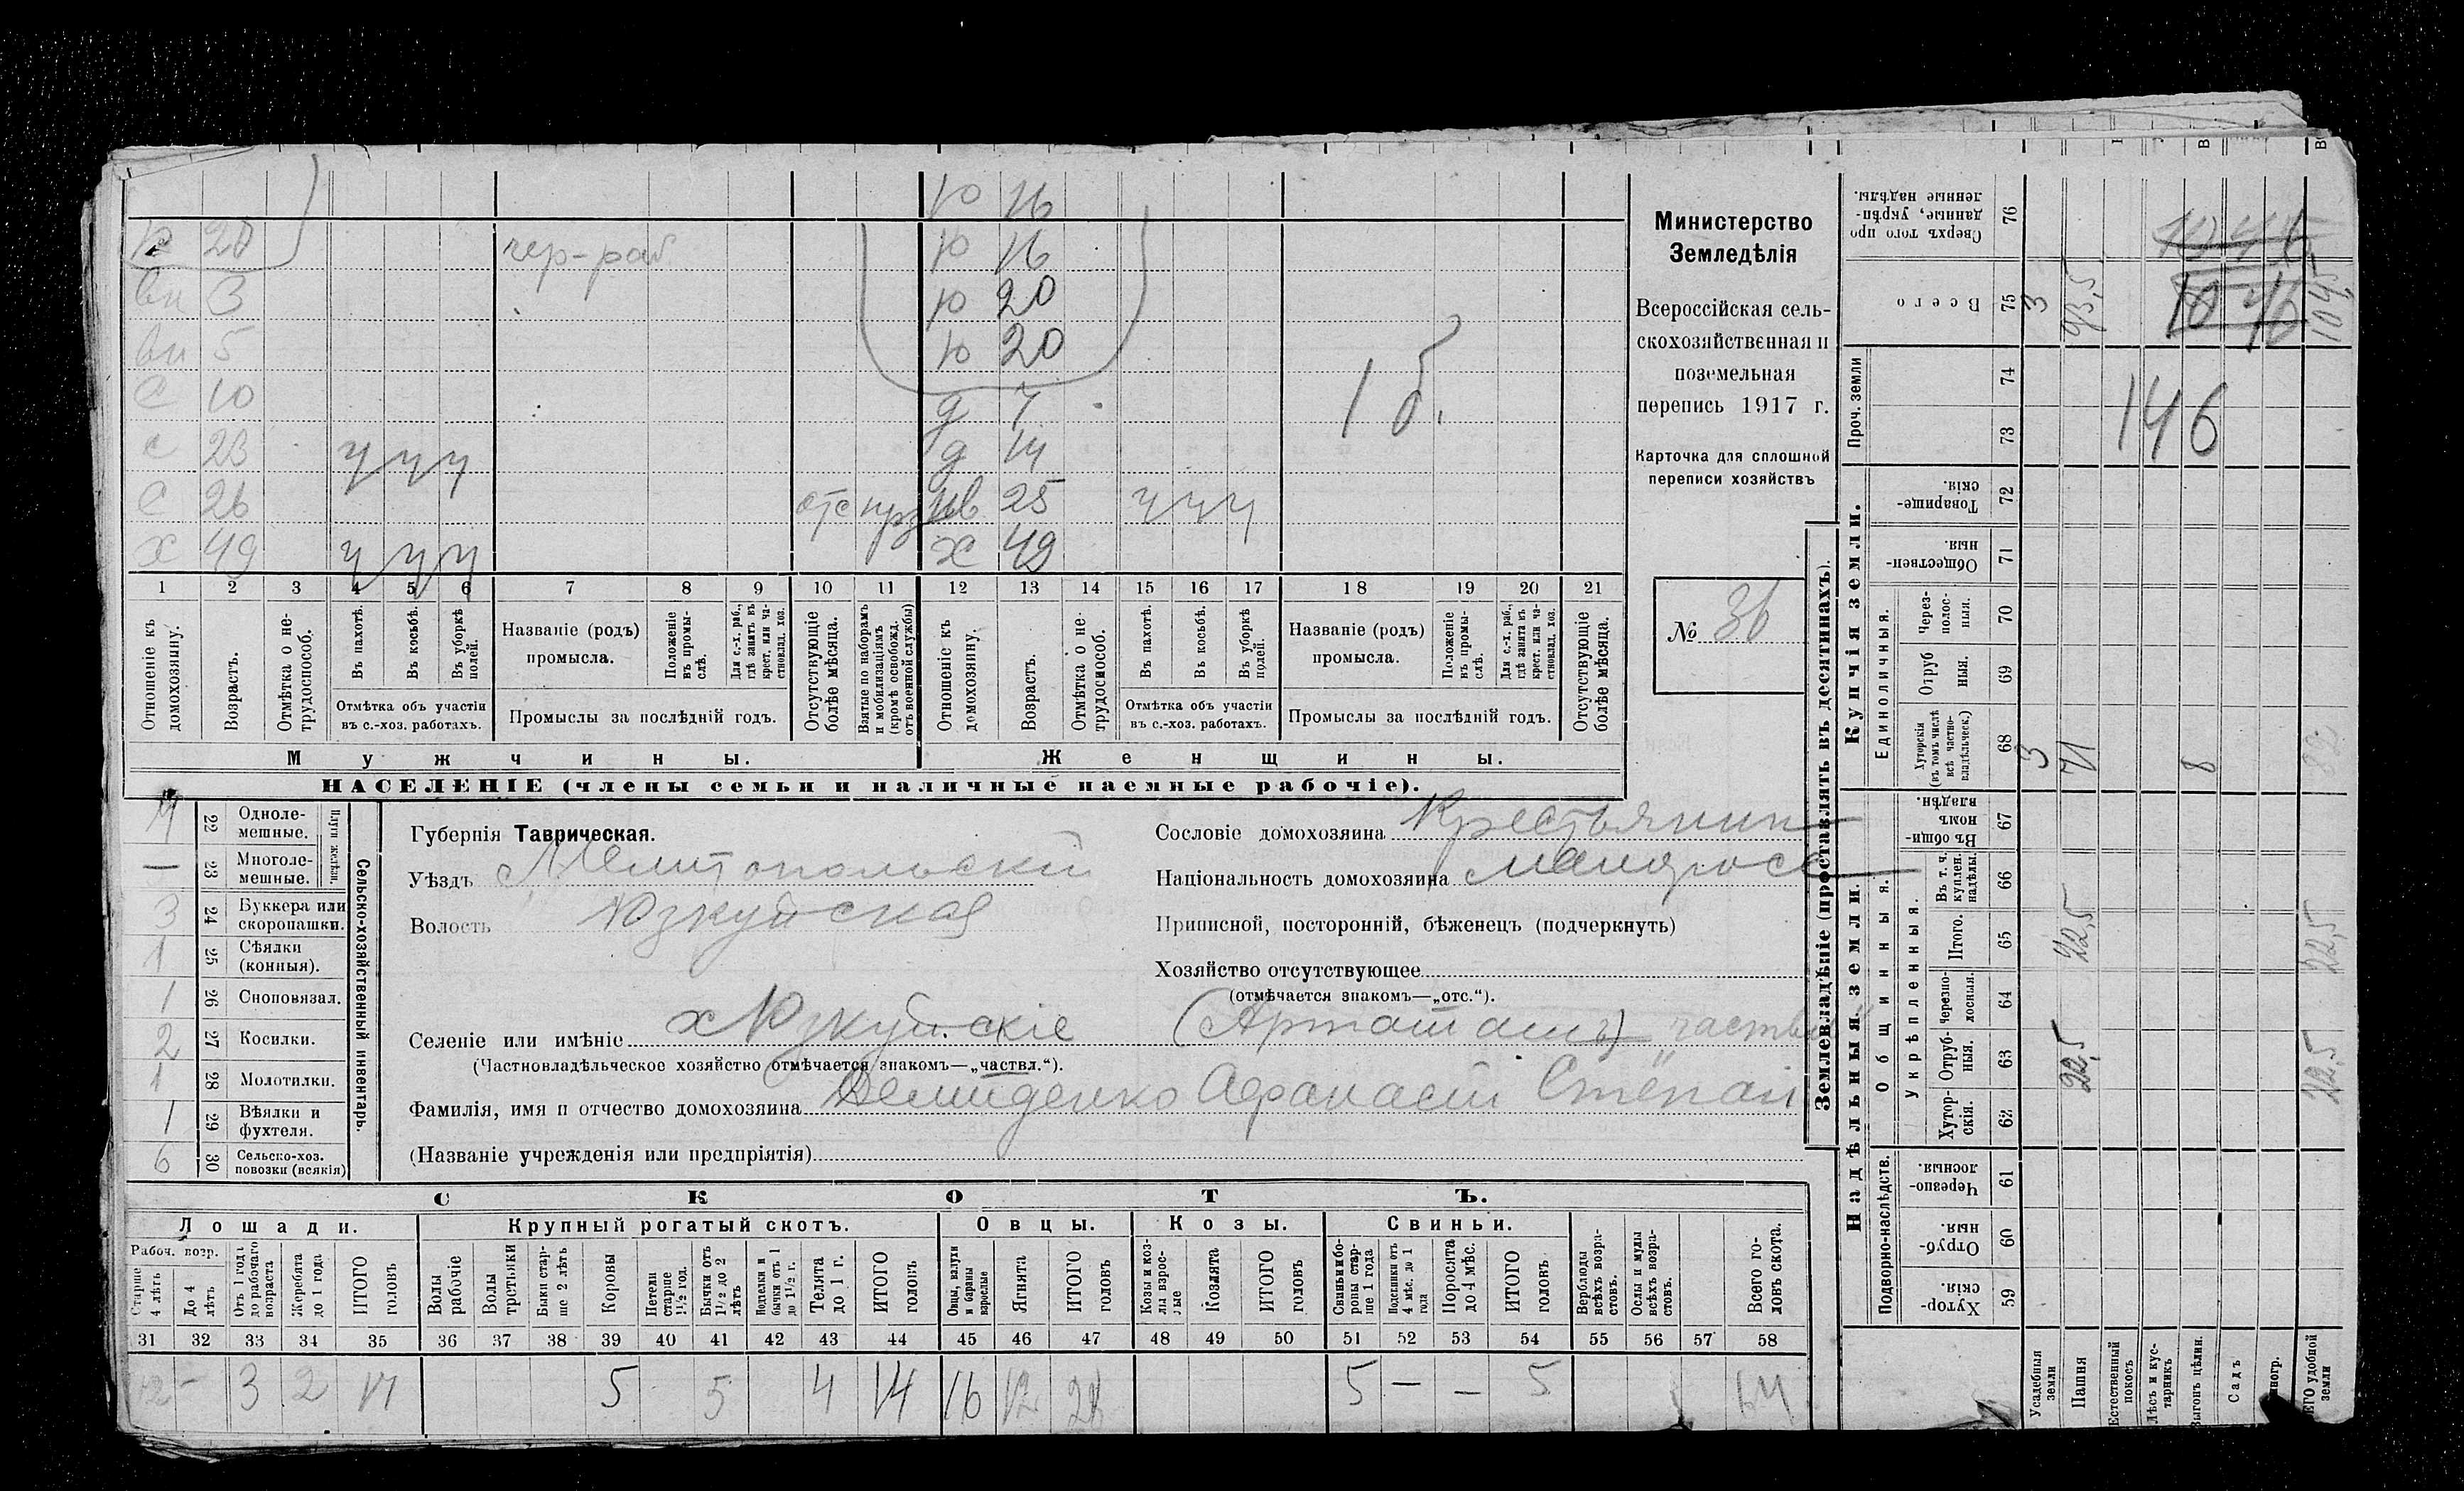 ю 16
к 20 чер-раб ю 16
вн 3 ю 20
вн 5 ю 20
с 10 д 7 1 б.
с 23 ч ч ч д 14
с 26 отс нв 25 ч ч ч
х 49 ч ч ч х 49
1 2 3 4 5 6 7 8 9 10 11 12 13 14 15 16 17 18 19 20 21
Отношеніе къ домохозяину.
Возрастъ.
Отмѣтка о нетрудоспособ.
Въ пахотѣ.
Въ косьбѣ.
Въ уборкѣ полей.
Отмѣтка объ участіи въ с.-хоз. работахъ.
Названіе (родъ) промысла.
Положеніе въ промыслѣ.
Для с.-х. раб., гдѣ занятъ въ крест. или частновлад. хоз.
Промыслы за послѣдній годъ.
Отсутствующіе болѣе мѣсяца.
Взятые по наборамъ и мобилизаціямъ (кромѣ освобожд. отъ военной службы)
Отношеніе къ домохозяину.
Возрастъ.
Отмѣтка о нетрудоспособ.
Въ пахотѣ.
Въ косьбѣ.
Въ уборкѣ полей.
Отмѣтка объ участіи въ с.-хоз. работахъ.
Названіе (родъ) промысла.
Положеніе въ промыслѣ.
Для с.-х. раб., гдѣ занята въ крест. или частновлад. хоз.
Промыслы за послѣдній годъ.
Отсутствующіе болѣе мѣсяца.
Мужчины. Женщины.
НАСЕЛЕНІЕ (члены семьи и наличные наемные рабочіе).
Министерство
Земледѣлія
Всероссійская сель-
скохозяйственная и
поземельная
перепись 1917 г.
Карточка для сплошной
переписи хозяйствъ
№ 36
22 Одноле-мешные.
— 23 Многоле-мешные.
Плуги желѣзн.
3 24 Буккера или скоропашки.
1 25 Сѣялки (конныя).
1 26 Сноповязал.
2 27 Косилки.
1 28 Молотилки.
1 29 Вѣялки и фухтеля.
6 30 Сельско-хоз. повозки (всякія)
Сельско-хозяйственный инвентарь.
Губернія Таврическая.
Уѣздъ Мелитопольскій
Волость Юзкуйская
Селеніе или имѣніе х Юзкуйскіе (Арташаш) частвл
(Частновладѣльческое хозяйство отмѣчается знакомъ—„частвл.“).
Фамилія, имя и отчество домохозяина Демиденко Афанасій Степан
(Названіе учрежденія или предпріятія)
Сословіе домохозяина Крестьянин
Національность домохозяина малоросс
Приписной, посторонній, бѣженецъ (подчеркнуть)
Хозяйство отсутствующее
(отмѣчается знакомъ—„отс.“).
СКОТЪ.
Лошади. Крупный рогатый скотъ. Овцы. Козы. Свиньи.
Рабоч. возр.
Старше 4 лѣтъ
До 4 лѣтъ
Отъ 1 года до рабочаго возраста
Жеребята до 1 года
ИТОГО головъ
Волы рабочіе
Волы третьяки
Быки старше 2 лѣтъ
Коровы
Нетели старше 1½ год.
Бычки отъ 1½ до 2 лѣтъ
Подтелки и бычки отъ 1 до 1½ г.
Телята до 1 г.
ИТОГО головъ
Овцы, валухи и бараны взрослые
Ягнята
ИТОГО головъ
Козы и козлы взрослые
Козлята
ИТОГО головъ
Свиньи и боровы старше 1 года
Подсвинки отъ 4 мѣс. до 1 года
Поросята до 4 мѣс.
ИТОГО головъ
Верблюды всѣхъ возрастовъ.
Ослы и мулы всѣхъ возрастовъ.
Всего головъ скота.
31 32 33 34 35 36 37 38 39 40 41 42 43 44 45 46 47 48 49 50 51 52 53 54 55 56 57 58
12 – 3 2 17 5 5 4 14 16 12 28 5 — — 5 64
Землевладѣніе (проставлять въ десятинахъ).
Купчія земли.
Надѣльныя земли.
Сверхъ того проданные, укрѣпленные надѣлы. 76
Всего 75 3 93,5 104,5
Проч. земли 74 73
146
Товарищескія. 72
Общественныя. 71
Единоличныя.
Черезполосныя. 70
Отрубныя. 69
Хуторскія (въ томъ числѣ всѣ частновладѣльческ.) 68 3 71 8 82
Общинныя.
Въ общиномъ владѣн. 67
Укрѣпленныя.
Въ т. ч. куплен. надѣлы. 66
Итого. 65 22,5 22,5
Черезполосныя. 64
Отрубныя. 63 22,5 22,5
Хуторскія. 62
Подворно-наслѣдств.
Черезполосныя. 61
Отрубныя. 60
Хуторскія. 59
Усадебныя земли
Пашня
Естественный покосъ
Лѣсъ и кустарникъ
Выгонъ цѣлин.
Садъ